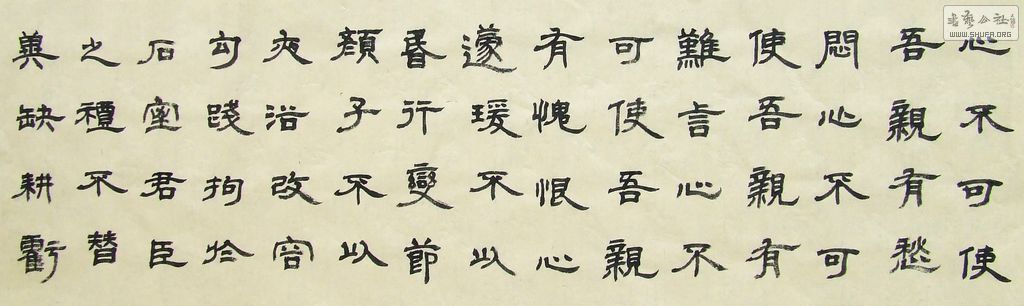 心不可使
吾親有愁
悶心不可
使吾親有
難言心不
可使吾親
有愧恨心
蘧瑗不以
昏行變節
顏子不以
夜浴改容
勾踐拘於
石室君臣
之禮不替
冀缺耕虧
书艺公社
WWW.SHUFA.ORG